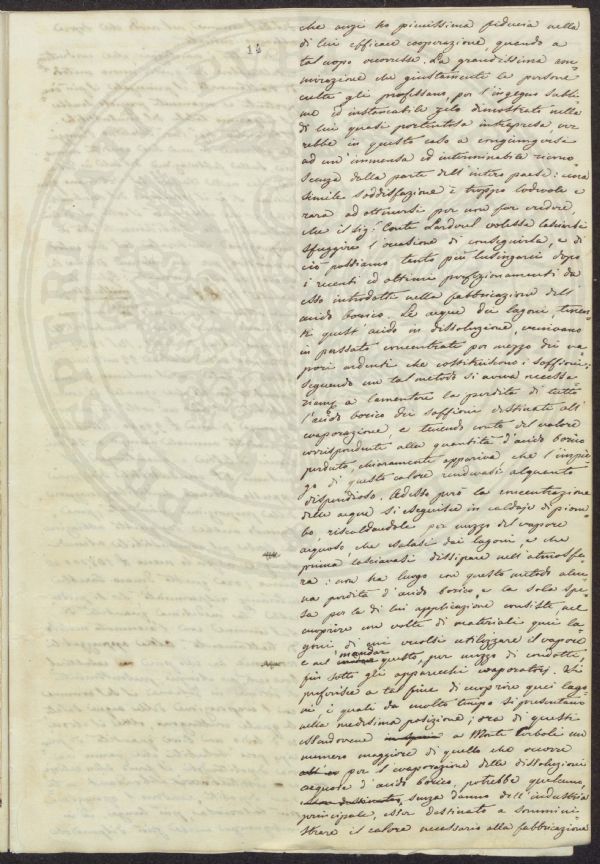 14
che anzi ho pienissima fiducia nella
di lui efficace cooperazione, quando a
tal uopo occorresse. La grandissima am-
mirazione che giustamente le persone
culte gli professano, per l'ingegno subli-
me ed instancabile zelo dimostrato nella
di lui quasi portentosa intrapresa, ver-
rebbe in questo caso a congiungersi
ad un'immensa ed interminabile ricono-
scenza della parte dell'intero paese: una
simile soddisfazione è troppo lodevole e
rara ad ottenersi per non far credere
che il sig. Conte Larderel volesse lasciarsi
sfuggire l'occasione di conseguirla, e di
ciò possiamo tanto più lusingarci dopo
i recenti ed ottimi perfezionamenti da
esso introdotti nella fabbricazione dell'
acido borico. Le acque dei lagoni, tenen-
ti quest'acido in dissoluzione, venivano
in passato concentrate per mezzo dei va-
pori ardenti che costituiscono i soffioni;
seguendo un tal metodo si aveva necessa-
riamte a lamentare la perdita di tutto
l'acido borico dei soffioni destinati all'
evaporazione, e tenendo conto del valore
corrispondente alla quantità d'acido borico
perduto, chiaramente appariva che l'impie-
go di questo calore rendevasi alquanto
dispendioso. Adesso però la concentrazione
delle acque si eseguisce in caldaje di piom-
bo, riscaldandole per mezzo del vapore
acquoso, che esalasi dai lagoni e che
prima lasciavasi dissipare nell'atmosfe-
ra: non ha luogo con questo metodo alcu-
na perdita d'acido borico, e la sola spe-
sa per la di lui applicazione consiste, nel
cuoprire con volte di materiale quei la-
goni di cui vuolsi utilizzare il vapore
e nel mandar questo, per mezzo di condotte,
fin sotto gli apparecchi evaporatorj. Si
preferisce a tal fine di cuoprire quei lago-
ni i quali da molto tempo si presentano
nella medesima posizione; ora di questi
essendovene a Monte Cerboli un
numero maggiore di quello che occorre
per l'evaporazione delle dissoluzioni
acquose d'acido borico, potrebbe qualcuno,
senza danno dell'industria
principale, esser destinato a sommini-
strare il calore necessario alla fabbricazione